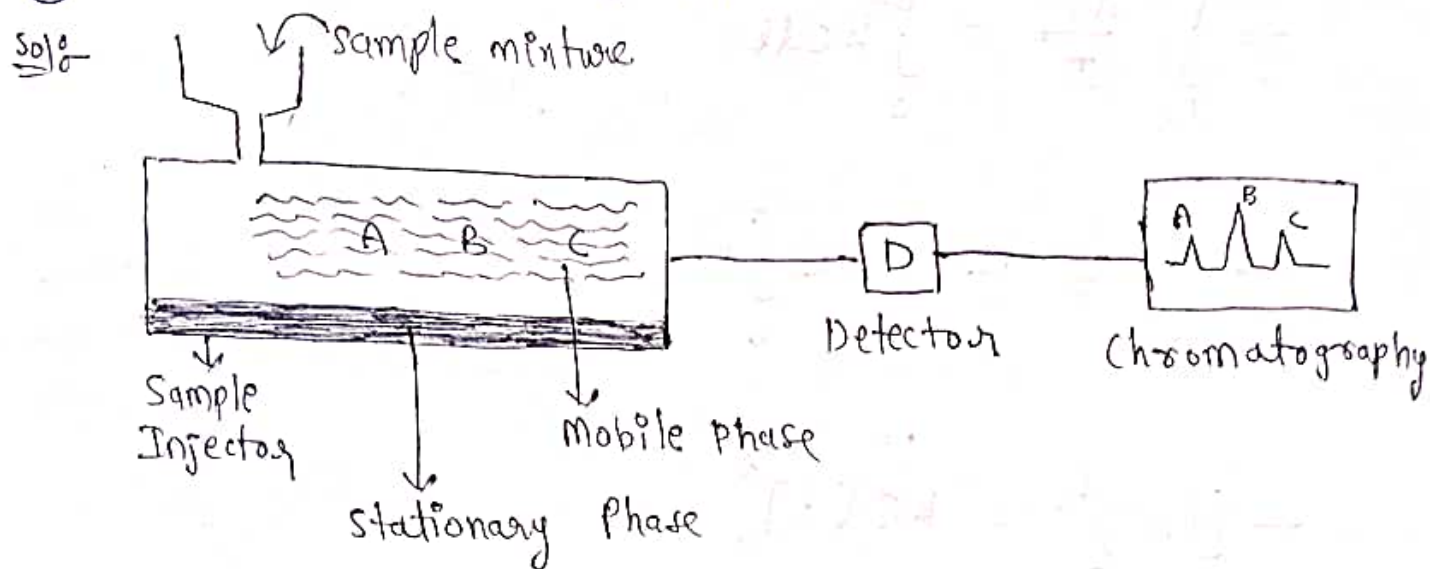 Sol:-
Sample minture
A B C
D
A B C
Detector
Chromatography
Sample
Injector
Mobile Phase
Stationary Phase